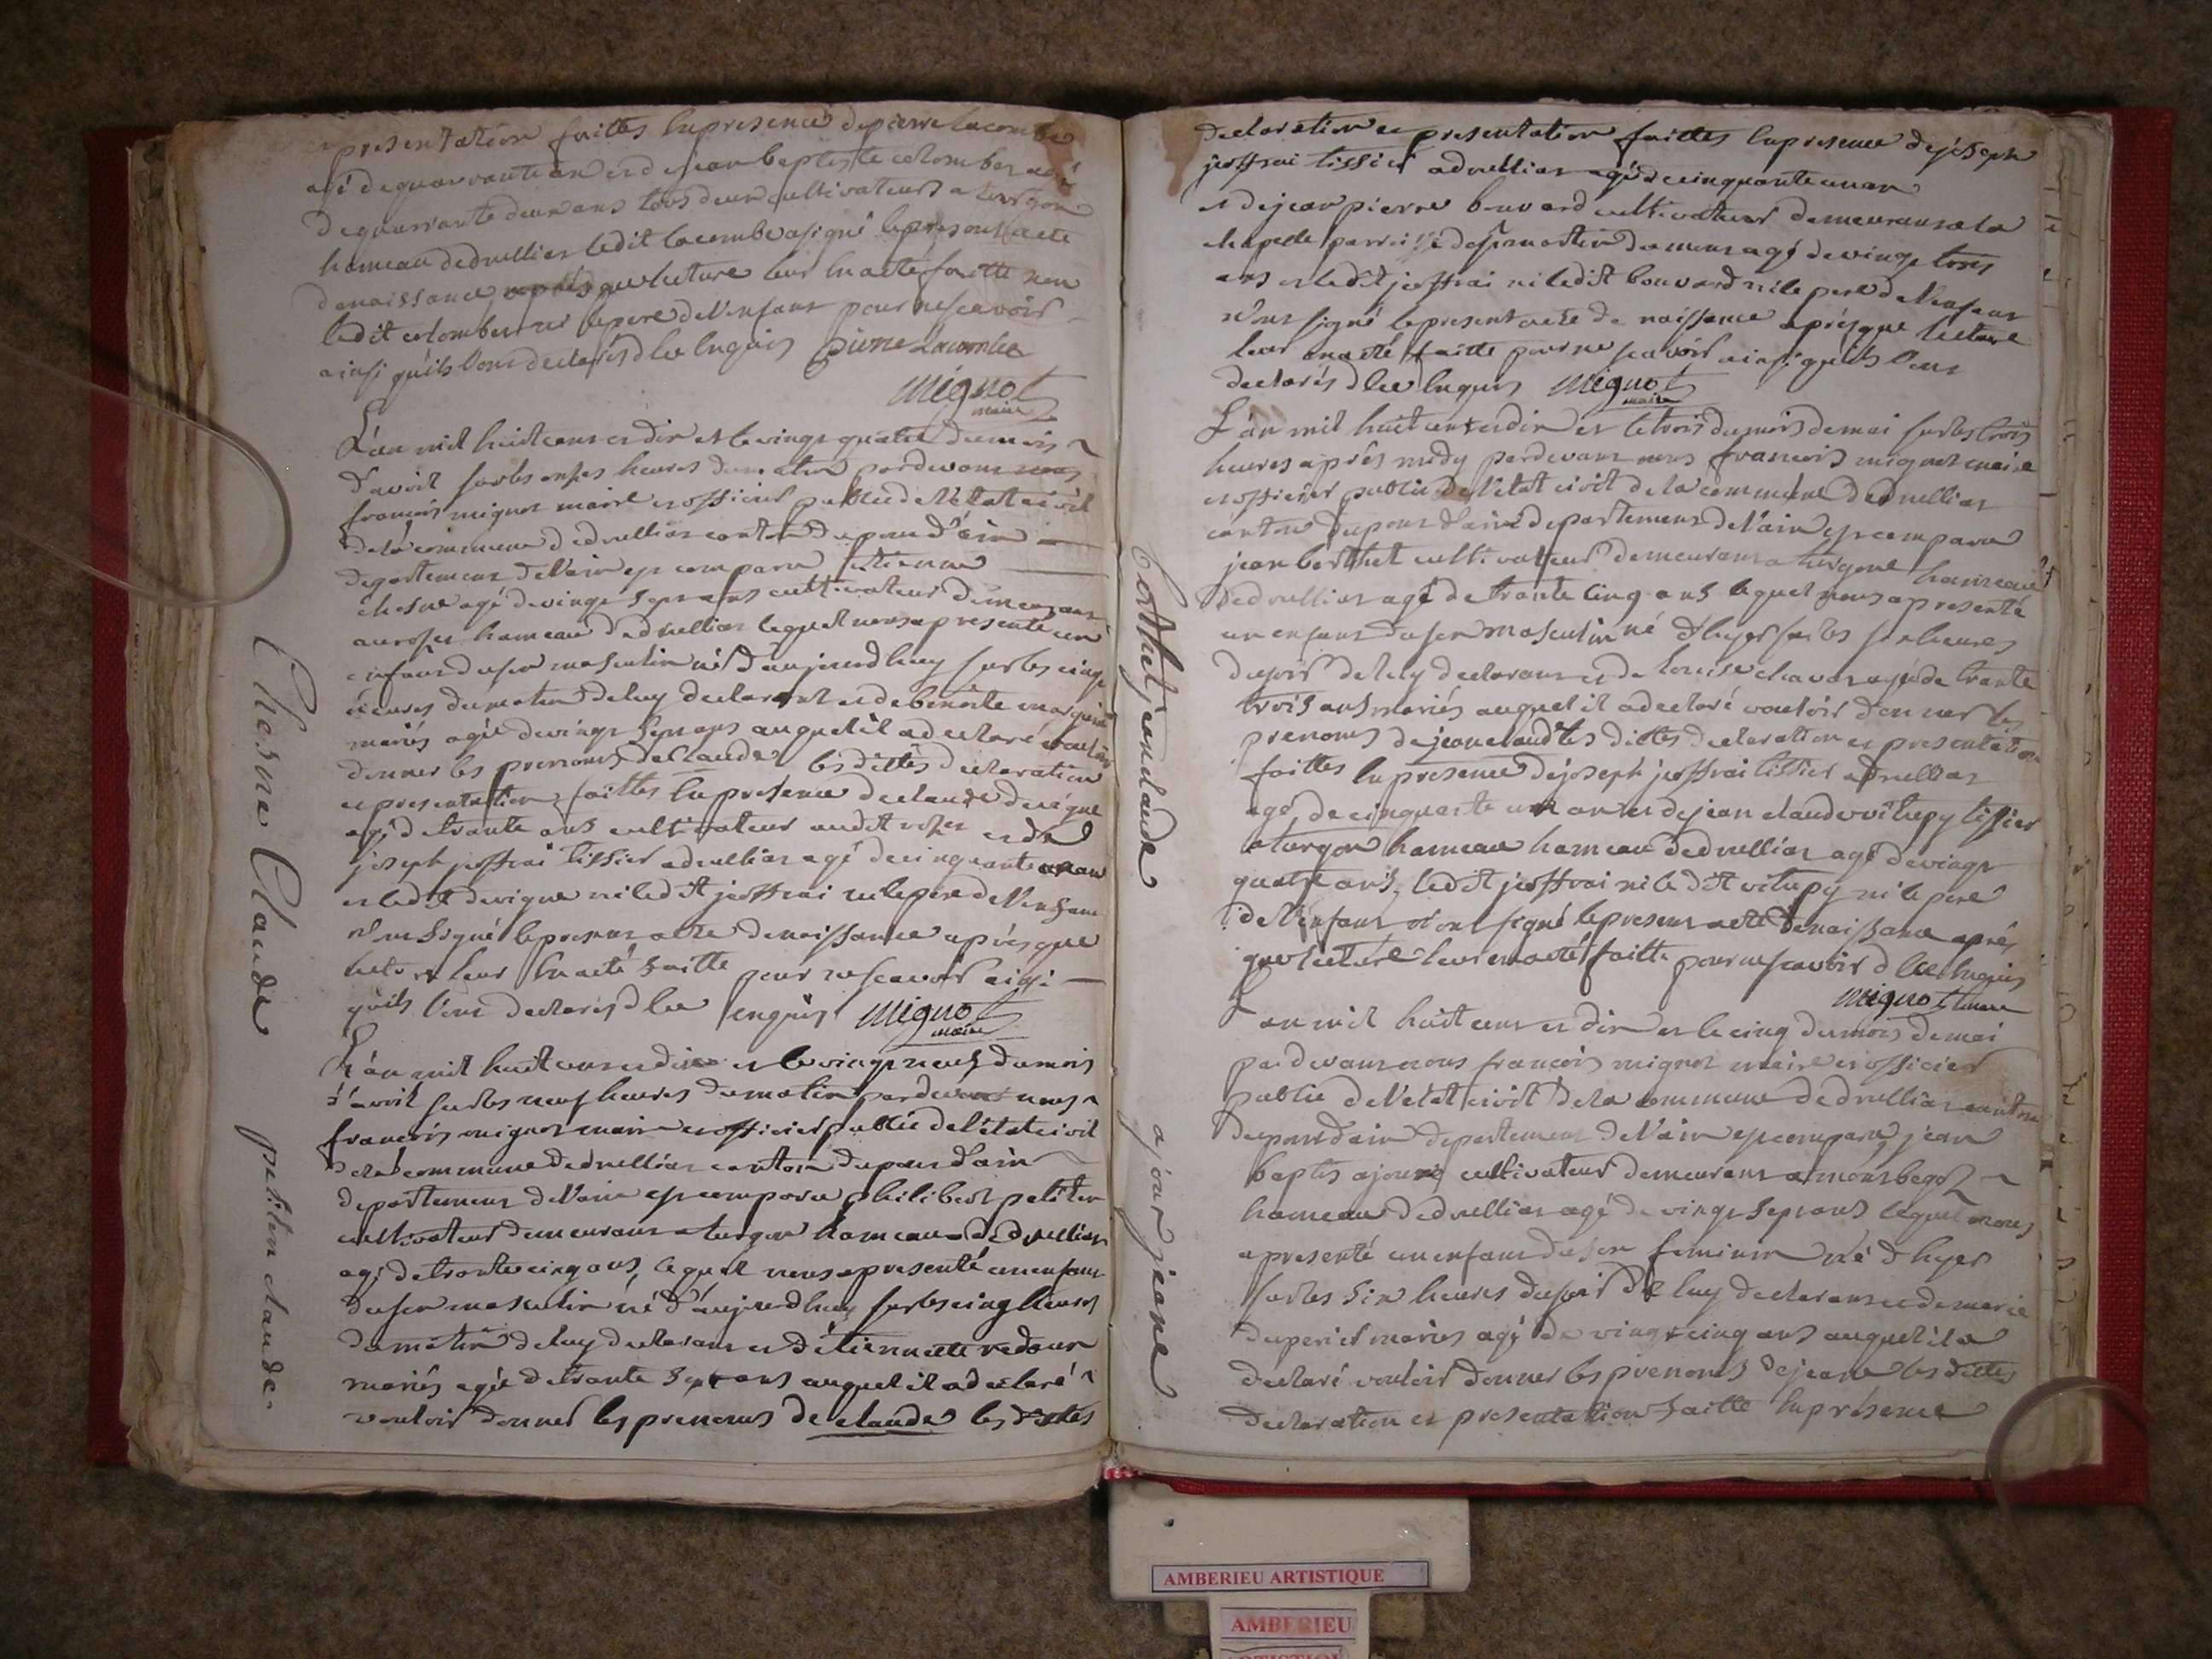 presentation faittes en presence de pierre lacombe
agé de quarrante an et de jean baptiste colomber agé
de quarrante deux ans tous deux cultivateurs a turgon
hameau de druillias ledit lacombe a signé le present acte
de naissance après que lecture leur en a eté faitte non
ledit colomber ni le pere de l'enfant pour ne scavoir
ainsi qu'ils l'ont declarés d lee enquis pierre Lacombe
mignot
maire
L'an mil huit cent et dix et le vingt quatre du mois
d'avril sur les onses heures du matin pardevant nous
françois mignot maire et officier public de l'état civil
de la commune de druillias canton du pont d'ain
departement de l'ain est comparu etienne
chesne agé de vingt sept ans cultivateur demeurant
au roset hameau de druillias lequel nous a presenté un
enfant du sex masculin né d'aujourd huy sur les cinq
heures du matin de luy declarant et de benoite
mariés agée de vingt sept ans auquel il a declaré vouloir
donner les prenoms de Claude les dittes declaration
et presentation faittes en presence de claude devigne
agé de trante ans cultivateur audit roset et de
joseph jeoffrai tissier a druillias agé de cinquante un an
et ledit devigne ni ledit jeoffrai ni le pere de l'enfant
n'ont signé le present acte de naissance après que
lecture leur en a eté faitte pour ne scavoir ainsi
qu'ils l'ont declarés d lee enquis mignot
maire
L'an mil huit cent et dix et le vingt neuf du mois
d'avril sur les neuf heures du matin pardevant nous
françois mignot maire et officier public de l'état civil
de la commune de druillias canton du pont d'ain
departement de l'ain est comparu philibert petiten
cultivateur demeurant a turgon hameau de druillias
agé de trante cinq ans, lequel nous a presenté un enfant
du sex masculin né d'aujourd huy sur les cinq heures
du matin de luy declarant et d'étiennette redour
mariés agée de trante sept ans auquel il a declaré
vouloir donner les prenoms de claude les dittes
Chesne Claude
petiten claude
declaration et presentation faittes en presence de joseph
jeoffrai tissier a druillias agé de cinquante un an
et de jean pierre bouvard cultivateur demeurant a la
chapelle parroisse de st martin du mont agé de vingt trois
ans et ledit jeoffrai ni ledit bouvard ni le pere de l'enfant
n'ont signé le present acte de naissance après que lecture
leur en a eté faitte pour ne scavoir ainsi qu'ils l'ont
declarés d lee enquis mignot
maire
L'an mil huit cent et dix et le trois du mois de mai sur les trois
heures après midy pardevant nous françois mignot maire
et officier public de l'état civil de la commune de druillias
canton du pont d'ain departement de l'ain est comparu
jean berthet cultivateur demeurant a turgon hameau
de druillias agé de trante cinq ans lequel nous a presenté
un enfant du sex masculin né d'hyer sur les six heures
du soir de luy declarant et de louise chavan agée de trante
trois ans mariés auquel il a declaré vouloir donner les
prenoms de jean claud les dittes declaration et presentation
faittes en presence de joseph jeoffrai tissier a druillias
agé de cinquante un an et de jean claude vitupy tissier
a turgon hameau hameau de druillias agé de vingt
quatre ans, ledit jeoffrai ni le dit vitupy ni le pere
de l'enfant n'ont signé le present acte de naissance après
que lecture leur en a eté faitte pour ne scavoir d lee enquis
mignot maire
L'an mil huit cent et dix et le cinq du mois de mai
pardevant nous françois mignot maire et officier
public de l'état civil de la commune de druillias canton
du pont d'ain departement de l'ain est comparu jean
baptis ajoux cultivateur demeurant a montbegoz
hameau de druillias agé de vingt sept ans lequel nous
a presenté un enfant du sex feminin né d'hyer
sur les six heures du soir de luy declarant et de marie
duperier mariés agé de vingt cinq ans auquel il a
declaré vouloir donner les prenoms de jeane les dittes
declaration et presentation faitte en présence
berthet jean claude
ajoux jeane
AMBERIEU ARTISTIQUE
AMBERIEU
ARTISTIQUE